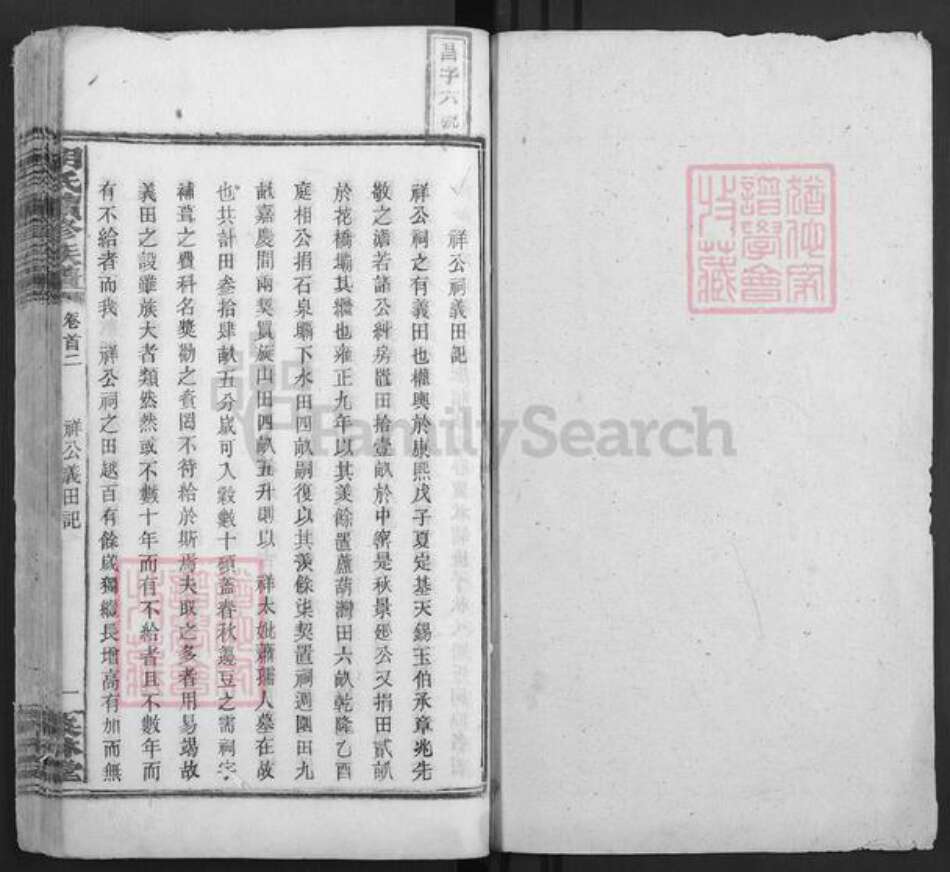 昌字六號
祥公祠義田記
祥公祠之有義田也權輿於康熙戊子夏定基天錫玉伯承章兆先
敬之澹若諸公糾房置田拾壹畝於中寧是秋景廷公又捐田貳畝
於花橋壩其繼也雍正九年以其羨餘置蘆葫灣田六畝乾隆乙酉
庭相公捐石泉壩下水田四畝嗣復以其羨餘柒契置祠週圍田九
畝嘉慶間兩契買旋山田四畝五升則以 祥太妣蕭孺人墓在故
也共計田叁拾肆畝五分歲可入穀數十碩蓋春秋籩豆之需祠宇
補葺之費科名獎勸之資罔不待給於斯焉夫取之多者用易竭故
義田之設雖族大者類然然或不數十年而有不給者且不數年而
有不給者而我 祥公祠之田越百有餘歲獨繼長增高有加而無
氏 修族譜
卷首二
祥公義田記
一
堂
譜學會
收藏
FamilySearch